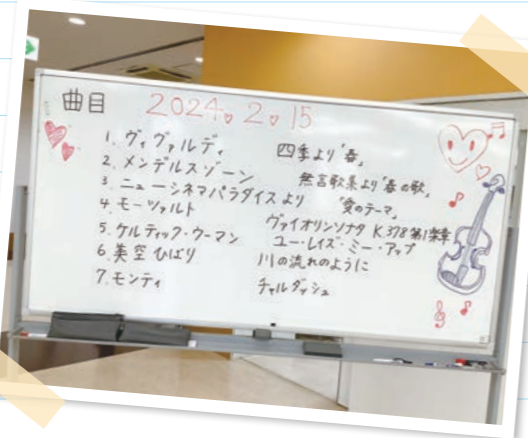 曲目 2024 2 15
1. ヴィヴァルディ 四季より「春」
2. メンデルスゾーン 無言歌集より「春の歌」
3. ニューシネマパラダイスより 「愛のテーマ」
4. モーツァルト ヴァイオリンソナタ K.378 第1楽章
5. ケルティック・ウーマン ユー・レイズ・ミー・アップ
6. 美空ひばり 川の流れのように
7. モンティ チャルダッシュ